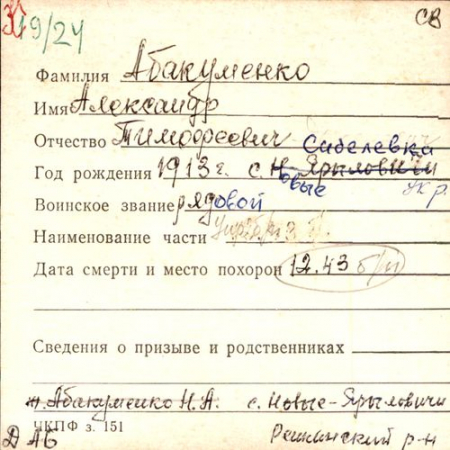 19/24 СВ
Фамилия Абакуменко
Имя Александр
Отчество Тимофеевич Сибелевка
Год рождения 1913 г. с. Н. Ярыловичи
овые Укр.
Воинское звание рядовой
Наименование части
Дата смерти и место похорон 12.43 б/и
Сведения о призыве и родственниках
Абакуменко Н.А. с. Новые-Ярыловичи
ЧКПФ з. 151
Д АБ Репкинский р-н